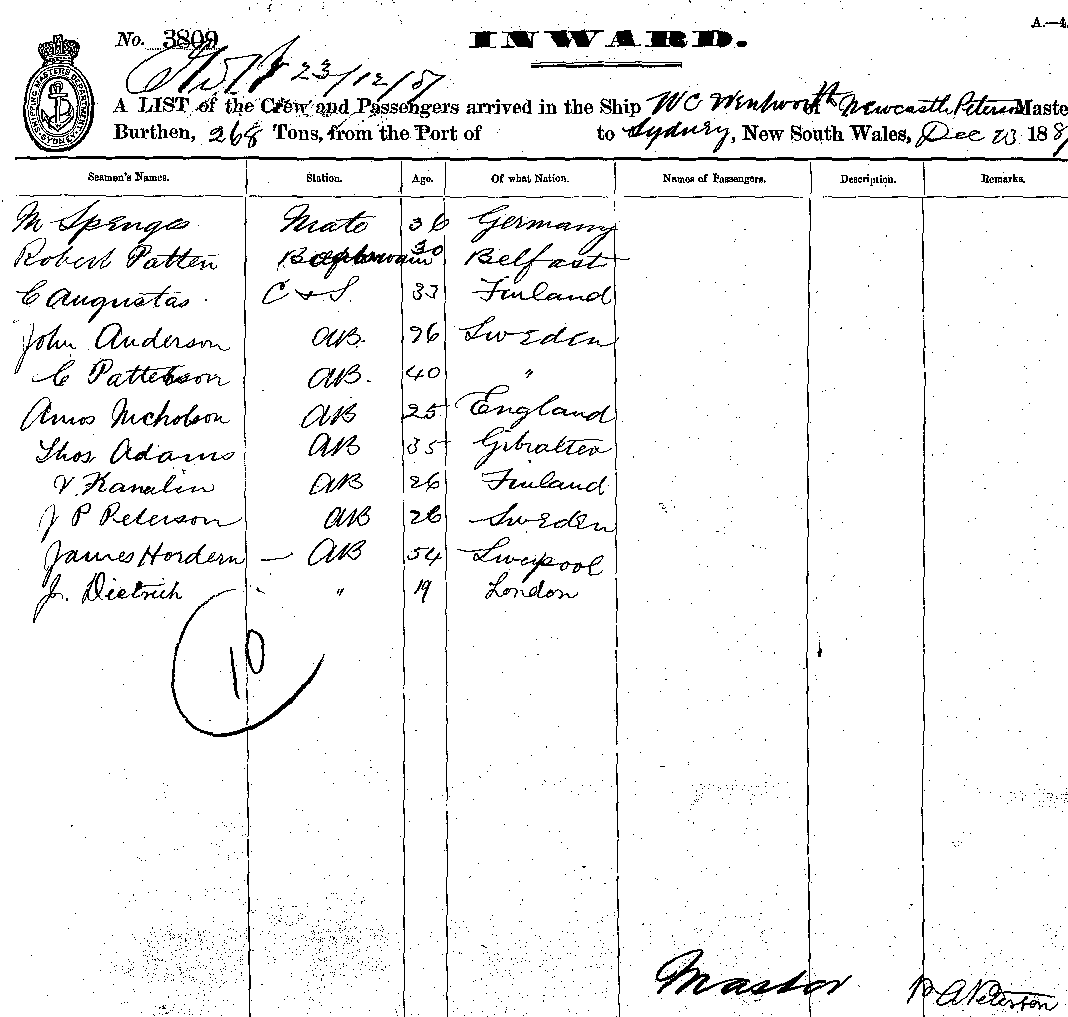 A.—4
No. 3809 INWARD.
23/12/87
A LIST of the Crew and Passengers arrived in the Ship W C Wentworth of Newcastle, Peterson Maste
Burthen, 268 Tons, from the Port of to Sydney, New South Wales, Dec 23 188
Seamen's Names. Station. Age. Of what Nation. Names of Passengers. Description. Remarks.
M Spenges Mate 36 Germany
Robert Patten 30 Belfast
C Augustas C & S. 33 Finland
John Anderson AB. 26 Sweden
C Patterson AB. 40 "
Amos Nicholson AB 25 England
Thos Adams AB 35 Gibralter
V. Kanalin AB 26 Finland
J P Peterson AB 26 Sweden
James Hordern — AB 54 Liverpool
J. Dietrich " 19 London
10
Master P A Peterson